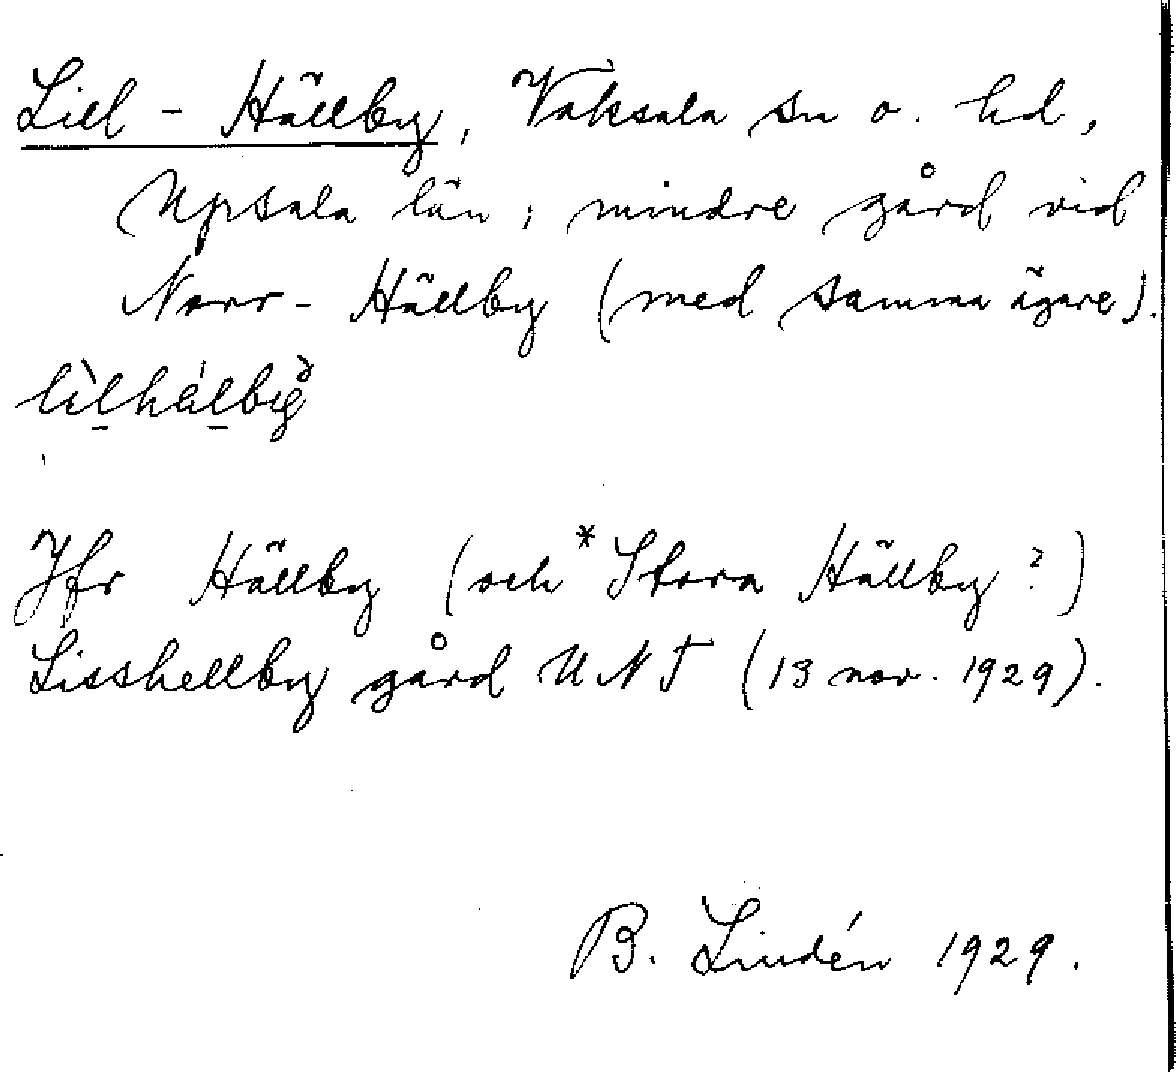 Lill - Hällby, Vaksala sn o. hd,
Upsala län; mindre gård vid
Norr - Hällby (med samma ägare).
Jfr Hällby (och *Stora Hällby?)
Lisshellby gård UNT (13 nov. 1929).
B. Lindén 1929.